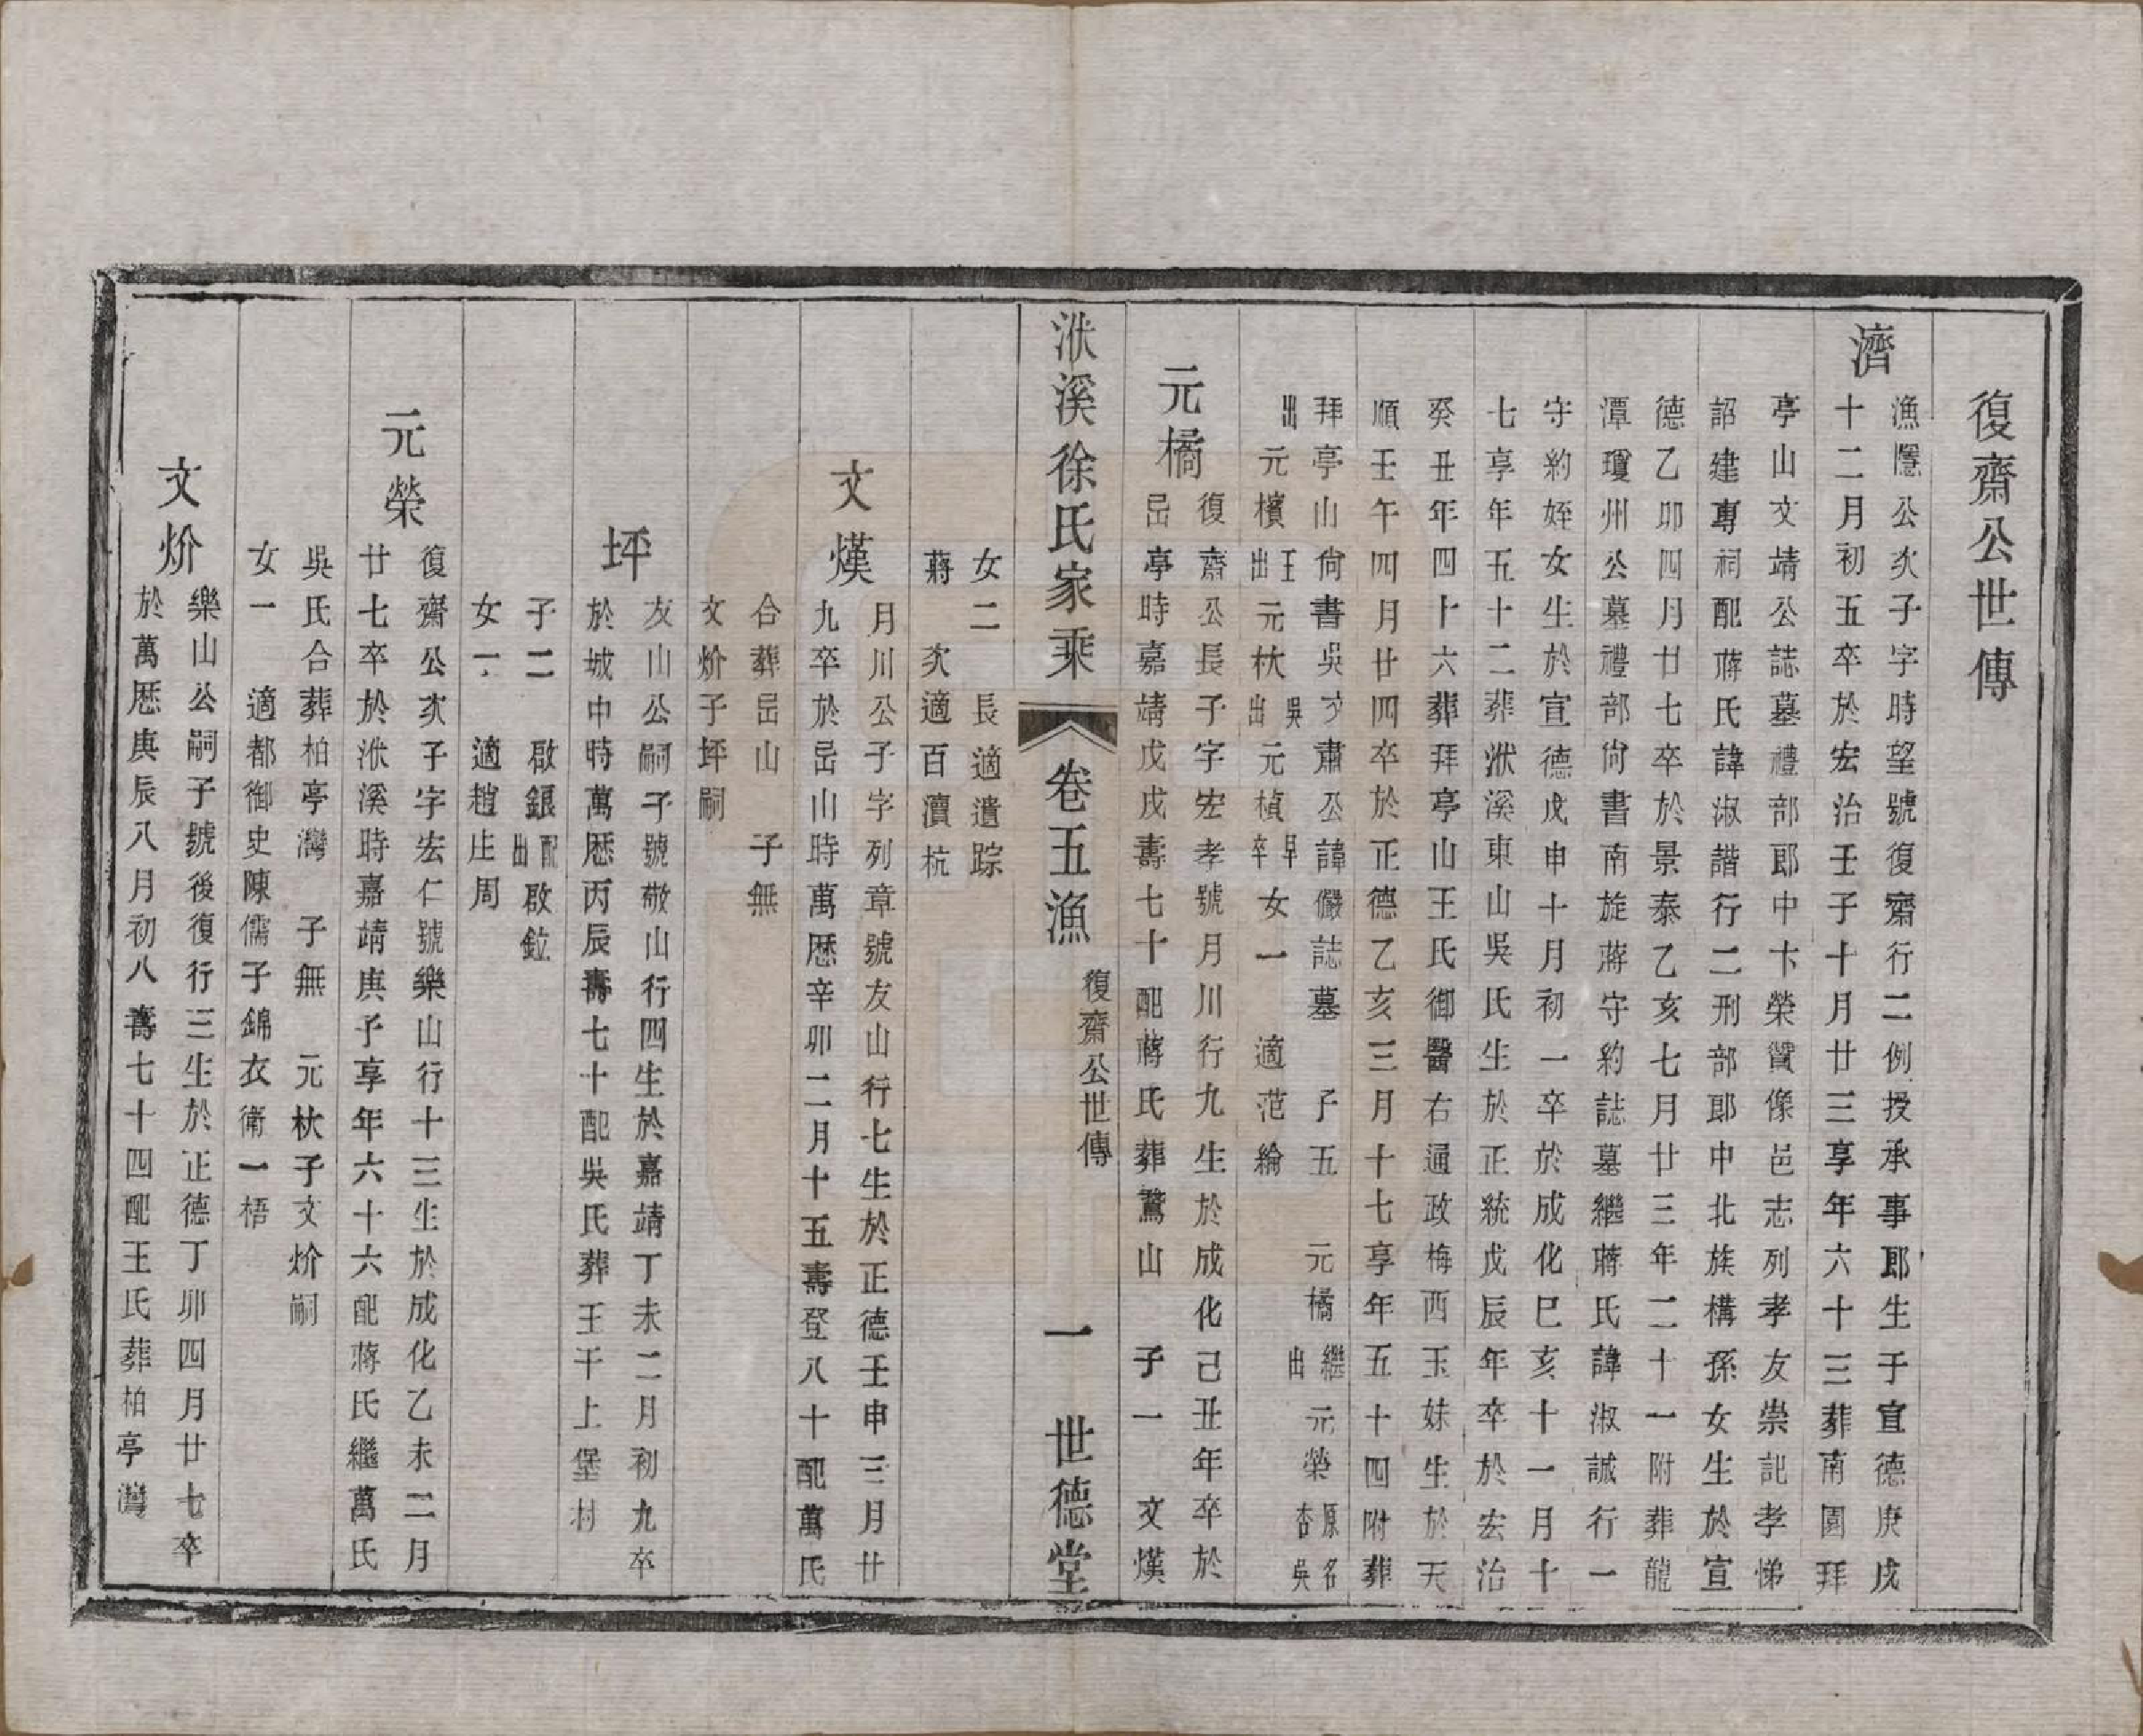 復齋公世傳
濟
漁隱公次子字時望號復齋行二例授承事郎生于宣德庚戌
十二月初五卒於宏治壬子十月廿三享年六十三葬南園拜
亭山文靖公誌墓禮部郎中卞榮贊像邑志列孝友崇記孝悌
詔建專祠配蔣氏諱淑諧行二刑部郎中北族構孫女生於宣
德乙卯四月廿七卒於景泰乙亥七月廿三年二十一附葬龍
潭瓊州公墓禮部尙書南旋蔣守約誌墓繼蔣氏諱淑誠行一
守約姪女生於宣德戊申十月初一卒於成化巳亥十一月十
七享年五十二葬洑溪東山吳氏生於正統戊辰年卒於宏治
癸丑年四十六葬拜亭山王氏御醫右通政梅西玉妹生於天
順壬午四月廿四卒於正德乙亥三月十七享年五十四附葬
拜亭山尙書吳文肅公諱儼誌墓 子五 元橘繼出 元榮原名杏吳
出 元檳王出 元杕吳出 元楨早卒 女一 適范綸
元橘
復齋公長子字宏孝號月川行九生於成化己丑年卒於
邑亭時嘉靖戊戌壽七十配蔣氏葬鵞山 子一 文熯
洑溪徐氏家乘 卷五漁 復齋公世傳 一 世德堂
女二 長適遺踪
蔣 次適百瀆杭
文熯
月川公子字列章號友山行七生於正德壬申三月廿
九卒於邑山時萬厯辛卯二月十五壽登八十配萬氏
合葬邑山 子無
文炌子坪嗣
坪
友山公嗣子號敬山行四生於嘉靖丁未二月初九卒
於城中時萬厯丙辰壽七十配吳氏葬王干上堡村
子二 啟鋃配出 啟鉝
女一 適趙庄周
元榮
復齋公次子字宏仁號樂山行十三生於成化乙未二月
廿七卒於洑溪時嘉靖庚子享年六十六配蔣氏繼萬氏
吳氏合葬柏亭灣 子無 元杕子文炌嗣
女一 適都御史陳儒子錦衣衛一梧
文炌
樂山公嗣子號後復行三生於正德丁卯四月廿七卒
於萬厯庚辰八月初八壽七十四配王氏葬柏亭灣